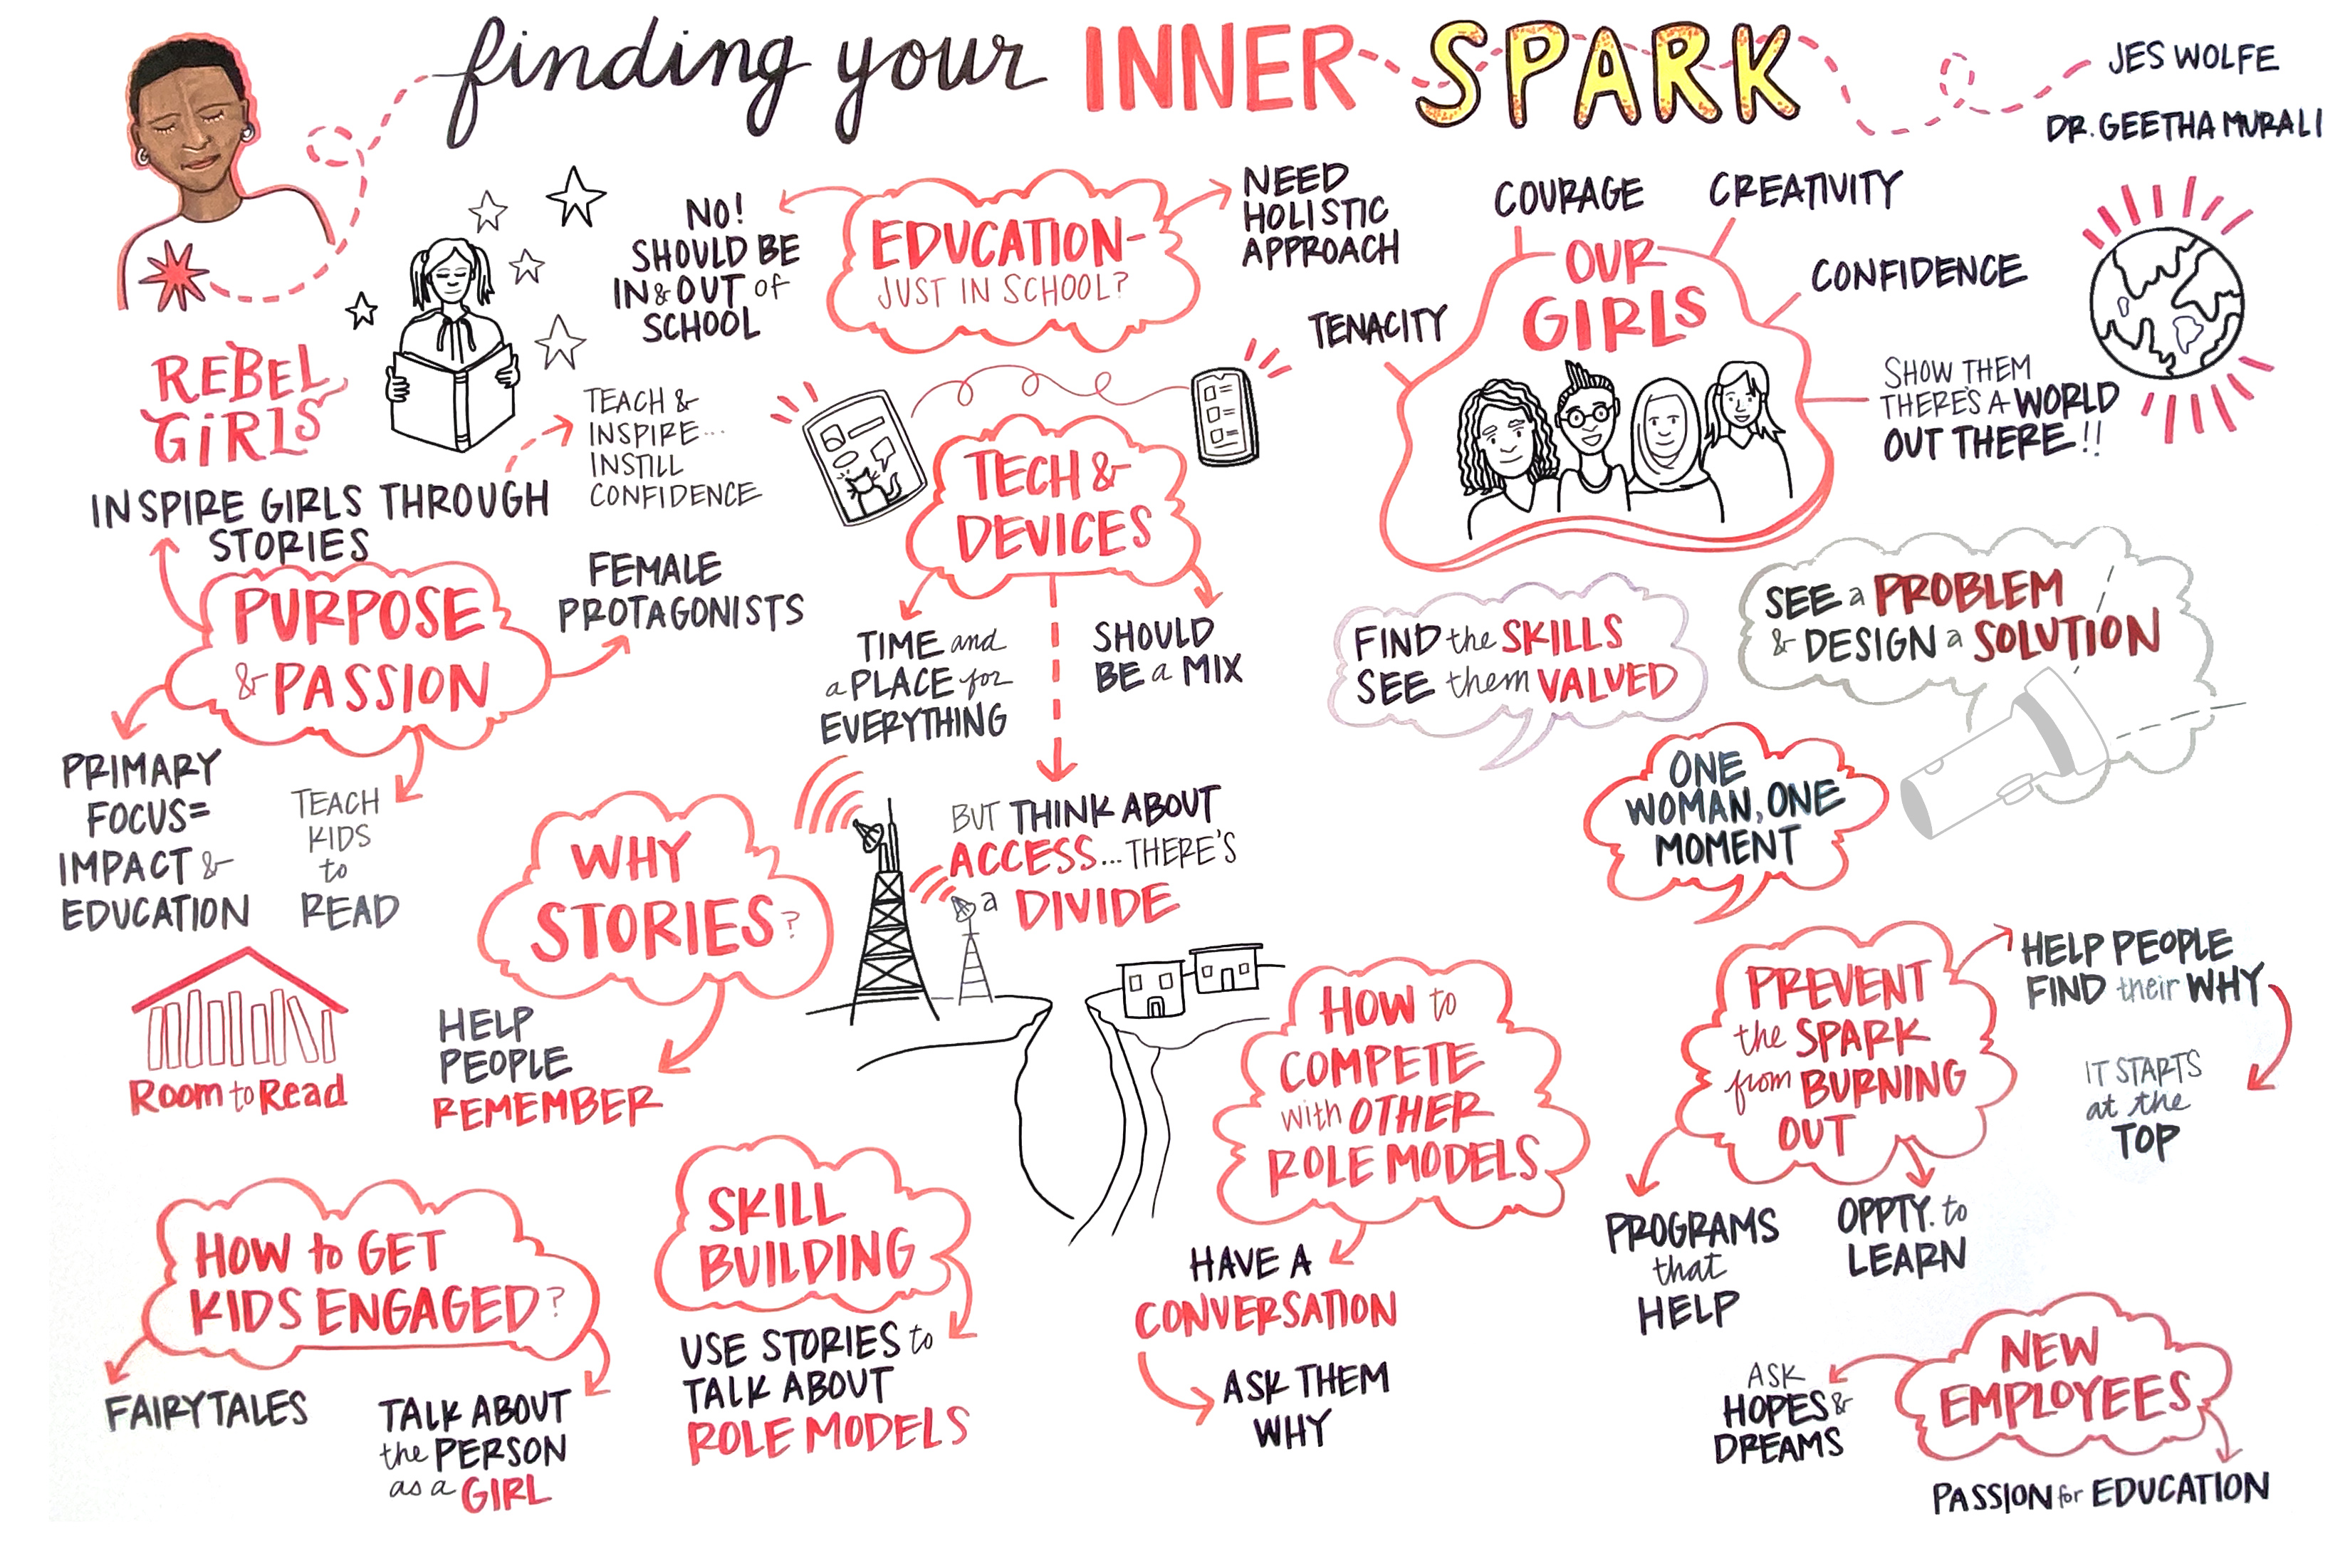 finding your INNER SPARK
JES WOLFE
DR. GEETHA MURALI
REBEL
GIRLS
INSPIRE GIRLS THROUGH
STORIES
TEACH &
INSPIRE...
INSTILL
CONFIDENCE
PURPOSE
& PASSION
FEMALE
PROTAGONISTS
PRIMARY
FOCUS=
IMPACT &
EDUCATION
TEACH
KIDS
to
READ
Room to Read
NO!
SHOULD BE
IN & OUT of
SCHOOL
EDUCATION-
JUST IN SCHOOL?
NEED
HOLISTIC
APPROACH
TECH &
DEVICES
TIME and
a PLACE for
EVERYTHING
SHOULD
BE a MIX
BUT THINK ABOUT
ACCESS... THERE'S
a DIVIDE
OUR
GIRLS
TENACITY
COURAGE
CREATIVITY
CONFIDENCE
SHOW THEM
THERE'S A WORLD
OUT THERE!!
FIND the SKILLS
SEE them VALUED
SEE a PROBLEM
& DESIGN a SOLUTION
ONE
WOMAN, ONE
MOMENT
WHY
STORIES?
HELP
PEOPLE
REMEMBER
HOW to GET
KIDS ENGAGED?
FAIRYTALES
TALK ABOUT
the PERSON
as a GIRL
SKILL
BUILDING
USE STORIES to
TALK ABOUT
ROLE MODELS
HOW to
COMPETE
with OTHER
ROLE MODELS
HAVE A
CONVERSATION
ASK THEM
WHY
PREVENT
the SPARK
from BURNING
OUT
HELP PEOPLE
FIND their WHY
IT STARTS
at the
TOP
PROGRAMS
that
HELP
OPPTY. to
LEARN
NEW
EMPLOYEES
ASK
HOPES &
DREAMS
PASSION for EDUCATION